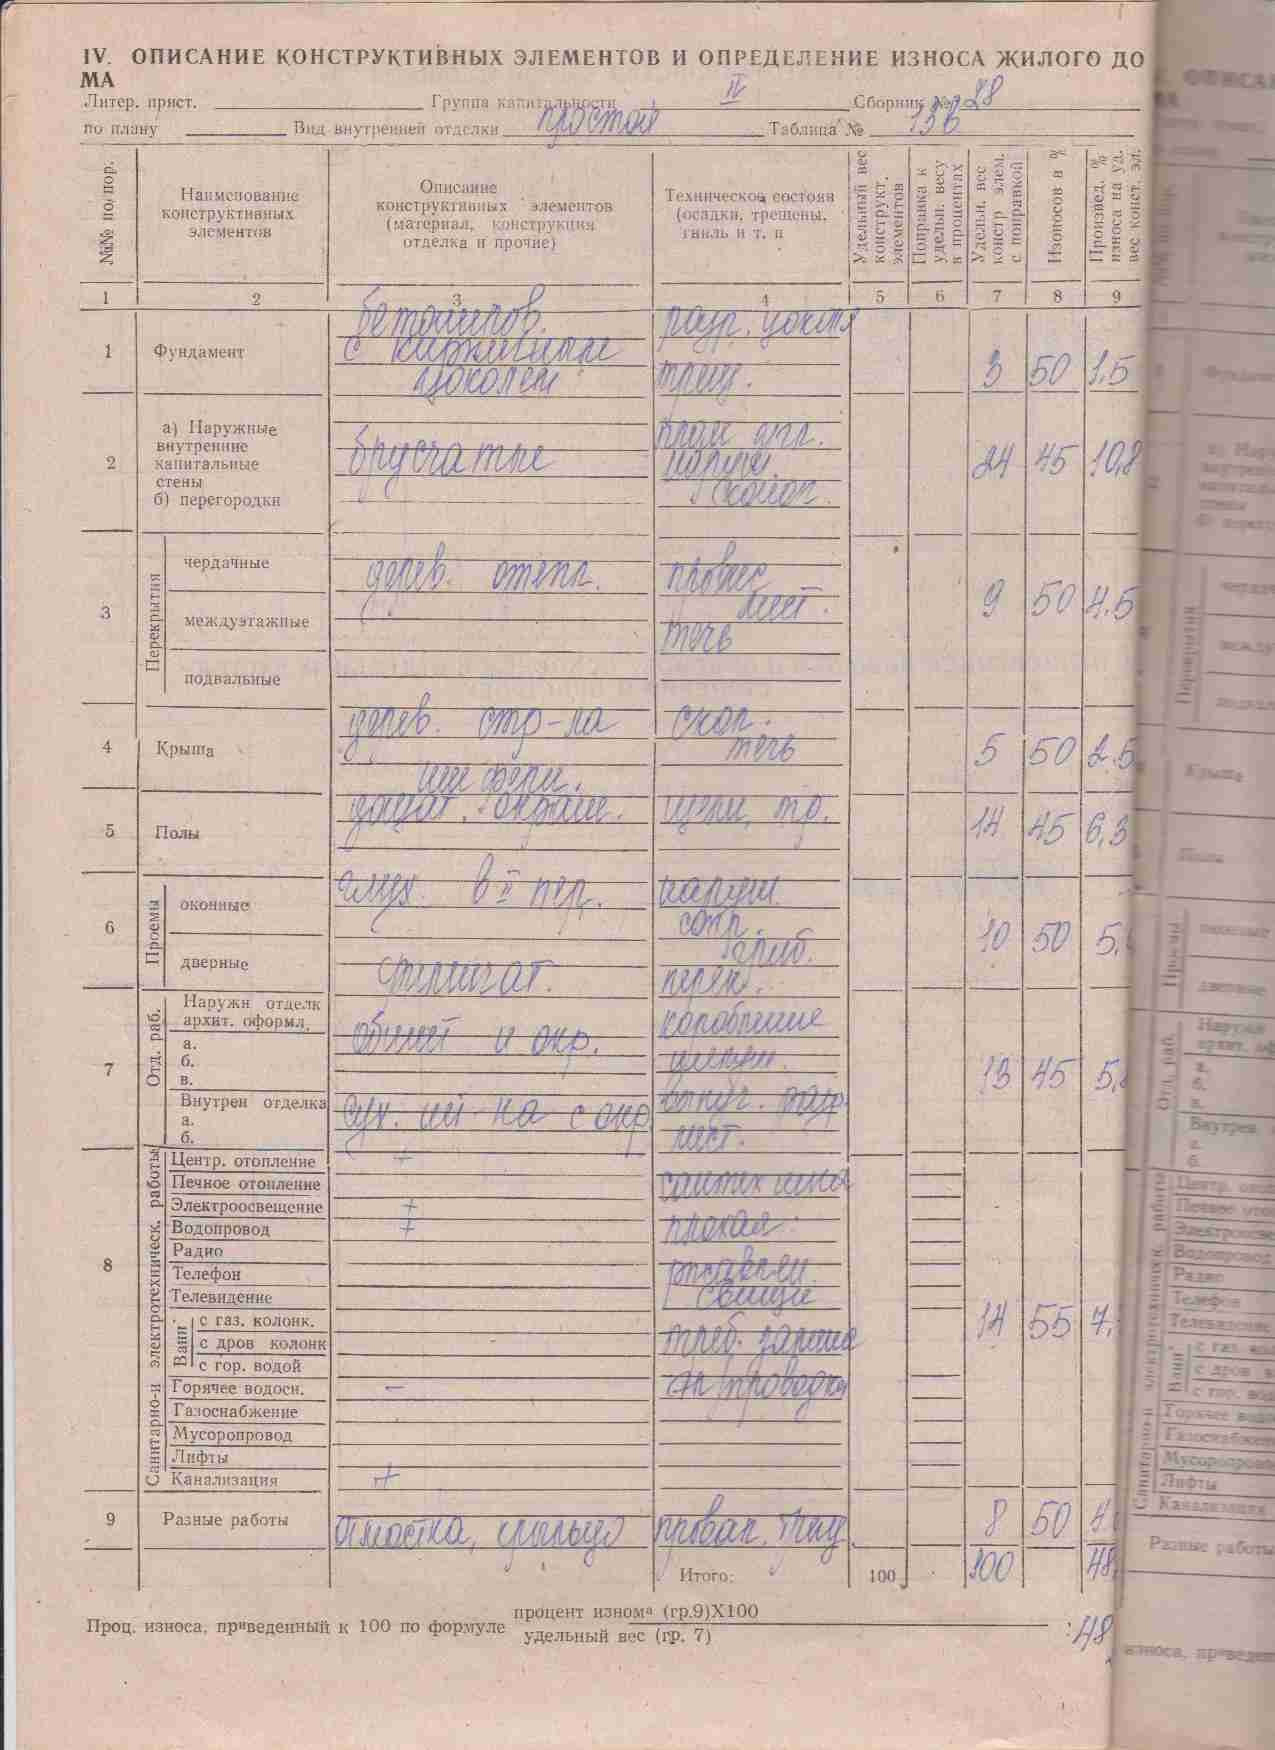 IV. ОПИСАНИЕ КОНСТРУКТИВНЫХ ЭЛЕМЕНТОВ И ОПРЕДЕЛЕНИЕ ИЗНОСА ЖИЛОГО ДО
МА
Литер. прист. Группа капитальности IV Сборник № 28
по плану Вид внутренней отделки простой Таблица № 136
№№ по/пор.
Наименование
конструктивных
элементов
Описание
конструктивных элементов
(материал, конструкция
отделка и прочие)
Техническое состоян
(осадки, трещены,
гниль и т. п
Удельный вес
конструкт.
элементов
Поправка к
удельн. весу
в процентах
Удельн. вес
констр элем.
с поправкой
Износов в %
Произвед. %
износа на уд.
вес конст. эл.
1 2 3 4 5 6 7 8 9
1 Фундамент
с кирпичным
цоколем
разр. цоколя
трещ.
3 50 1.5
2
а) Наружные
внутренние
капитальные
стены
б) перегородки
брусчатые
наруж.
24 45 10,8
3
Перекрытия
чердачные
междуэтажные
подвальные
дерев. отепл.
провис
мест.
течь
9 50 4.5
4 Крыша
дерев. стр-ла
шифери.
течь
5 50 2.5
5 Полы
дощат. окраш.
щели, тр.
14 45 6,3
6
Проемы
оконные
дверные
глух. в II пер.
филенчат.
наруш.
сопр.
перек.
10 50 5,
7
Отд. раб.
Наружн отделк
архит. оформл.
а.
б.
в.
Внутрен отделка
а.
б.
обшит и окр.
сух. шт-ка с окр.
коробление
выпуч. разр.
мест.
13 45 5,
8
Санитарно-и электротехническ. работы
Центр. отопление +
Печное отопление
Электроосвещение +
Водопровод +
Радио
Телефон
Телевидение
Ванн
с газ. колонк.
с дров колонк
с гор. водой
Горячее водосн. –
Газоснабжение
Мусоропровод
Лифты
Канализация +
свищи
треб. замена
эл проводки
14 55 7,
9 Разные работы
отмостка, крыльцо
провал. трещ
8 50 4.
Итого: 100 100 48,
Проц. износа, приведенный к 100 по формуле
процент износа (гр.9)Х100
удельный вес (гр. 7)
: 48